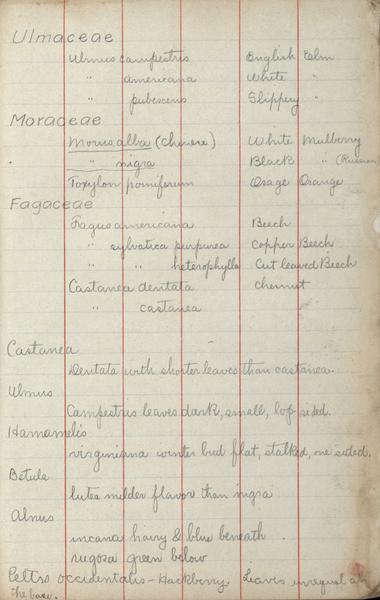 Ulmaceae
Ulmus campestris English Elm
" americana White "
" pubescens Slippery "
Moraceae
Morus alba (Chinese) White Mulberry
" nigra Black " (Russian)
Toxylon pomiferum Osage Orange
Fagaceae
Fagus americana Beech
" sylvatica purpurea Copper Beech
" " heterophylla Cut leaved Beech
Castanea dentata chesnut
" castanea
Castanea
Dentata with shorter leaves than castanea.
Ulmus
Campestris leaves dark, small, lop-sided.
Hamamelis
virginiana winter bud flat, stalked, one sided.
Betula
lutea milder flavor than nigra
Alnus
incana hairy & blue beneath
rugosa green below
Celtis occidentalis - Hackberry. Leaves unequal at
the base.